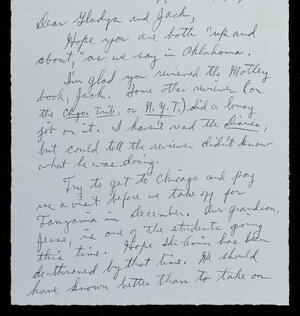 Dear Gladys and Jack,
Hope you are both "up and
about," as we say in Oklahoma.
I'm glad you reviewed the Motley
book, Jack. Some other reviewer (on
the Chgo Trib. or N.Y.T.) did a lousy
job on it. I haven't read the Diaries,
but could tell the reviewer didn't know
what he was doing.
Try to get to Chicago and pay
us a visit before we take off for
Tanzania in December. Our grandson,
Jesse, is one of the students going
this time. Hope Idi-Amin has been
de-throned by that time. He should
have known better than to take on